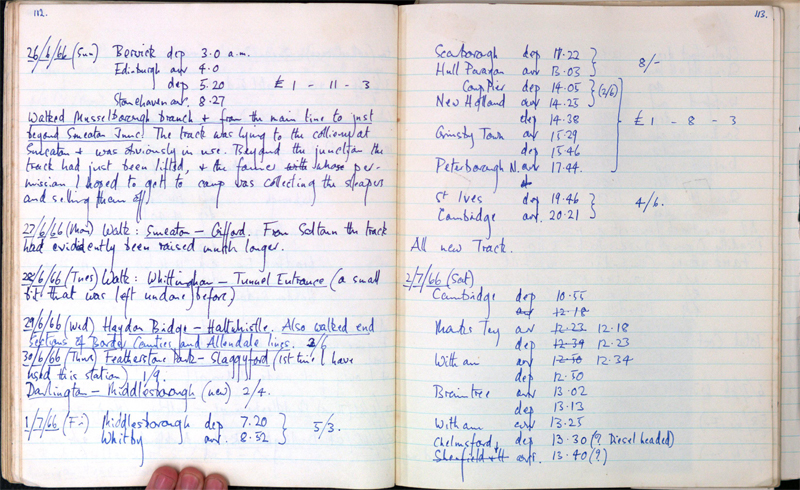 112.
26/6/66 (Sun) Berwick dep 3.0 a.m.
Edinburgh arr 4.0
dep 5.20 £1 - 11 - 3
Stonehaven arr. 8.27
Walked Musselborough branch & from the main line to just
beyond Smeaton Junc! The track was lying to the colliery at
Smeaton & was obviously in use. Beyond the junction the
track had just been lifted, & the farmer with whose per-
mission I hoped to get to camp was collecting the sleepers
and selling them off
27/6/66 (Mon) Walk: Smeaton - Gifford. From Saltoun the track
had evidently been raised much longer.
28/6/66 (Tues) Walk: Whittingham - Tunnel Entrance (a small
bit that was left undone before)
29/6/66 (Wed) Haydon Bridge - Haltwhistle. Also walked end
sections of Border Counties and Allendale lines. 2/6
30/6/66 (Thurs) Featherstone Park - Slaggyford (1st time I have
used this station) 1/9
Darlington - Middlesborough (new) 2/4.
1/7/66 (Fri) Middlesborough dep 7.20 } 5/3.
Whitby arr. 8.52
113.
Scarborough dep 11.22 } 8/-
Hull Paragon arr 13.03
Corp Pier dep 14.05 } (2/6)
New Holland arr 14.25
dep 14.38 £1 - 8 - 3
Grimsby Town arr 15.29
dep 15.46
Peterborough N. arr 17.44
St Ives dep 19.46 } 4/6.
Cambridge arr. 20.21
All new Track.
2/7/66 (Sat)
Cambridge dep 10.55
arr 12.18
Marks Tey arr 12.23 12.18
dep 12.34 12.23
Witham arr 12.50 12.34
dep 12.50
Braintree arr 13.02
dep 13.13
Witham arr 13.25
Chelmsford, dep 13.30 (? Diesel headed)
Shenfield & H arr. 13.40 (?)